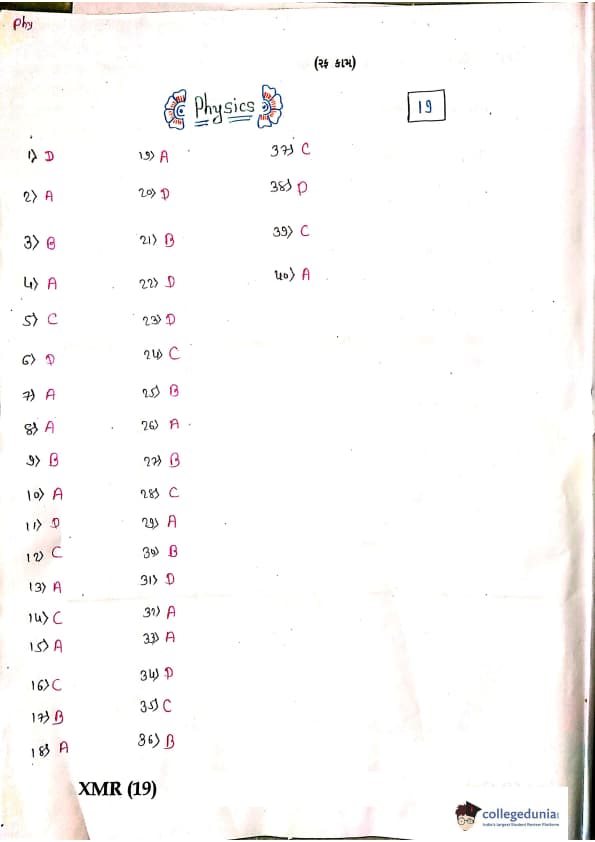 Phy
(રફ કામ)
Physics
19
1) D
2) A
3) B
4) A
5) C
6) D
7) A
8) A
9) B
10) A
11) D
12) C
13) A
14) C
15) A
16) C
17) B
18) A
19) A
20) D
21) B
22) D
23) D
24) C
25) B
26) A
27) B
28) C
29) A
30) B
31) D
32) A
33) A
34) D
35) C
36) B
37) C
38) D
39) C
40) A
XMR (19)
collegedunia
India's largest Student Review Platform